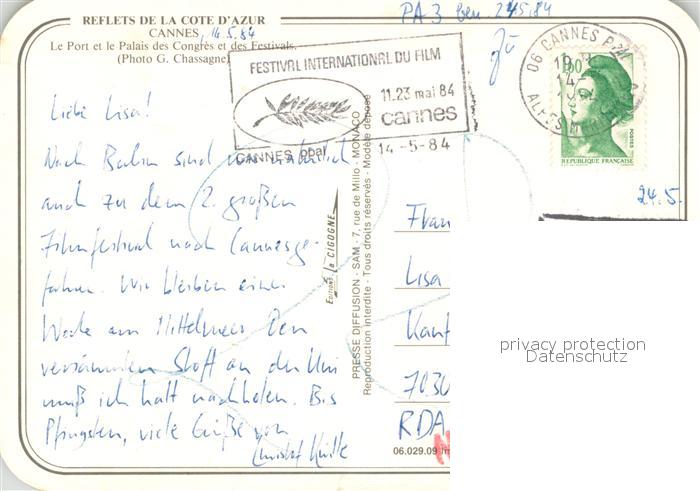 REFLETS DE LA COTE D'AZUR
CANNES, 14.5.84
Le Port et le Palais des Congrès et des Festivals.
(Photo G. Chassagne)
PA 3 ben. 24.5.84
FESTIVAL INTERNATIONAL DU FILM
11.23 mai 84
cannes
CANNES ppal
14-5-84
06 CANNES P.PAL
14-
ALPES M
REPUBLIQUE FRANÇAISE
POSTES
24.5.
Liebe Lisa!
Nach Berlin sind wir natürlich
auch zu dem 2. großen
Filmfestival nach Cannes ge-
fahren. Wir bleiben eine
Woche am Mittelmeer. Den
versäumten Stoff an der Uni
muß ich halt nachholen. Bis
Pfingsten, viele Grüße von
Editions "La CIGOGNE"
PRESSE DIFFUSION - SAM - 7, rue de Millo - MONACO
Reproduction interdite - Tous droits réservés - Modèle déposé
Frau
Lisa
7030
RDA
06.029.09
privacy protection
Datenschutz